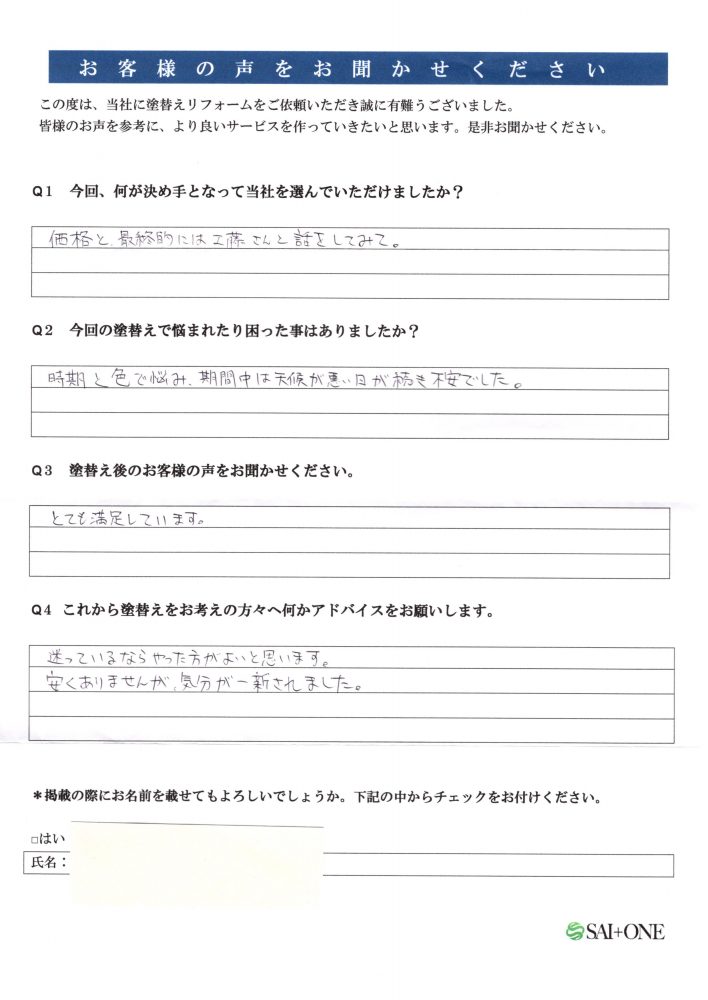 お客様の声をお聞かせください
この度は、当社に塗替えリフォームをご依頼いただき誠に有難うございました。
皆様のお声を参考に、より良いサービスを作っていきたいと思います。是非お聞かせください。
Q1 今回、何が決め手となって当社を選んでいただけましたか？
価格と、最終的には工藤さんと話をしてみて。
Q2 今回の塗替えで悩まれたり困った事はありましたか？
時期と色で悩み、期間中は天候が悪い日が続き不安でした。
Q3 塗替え後のお客様の声をお聞かせください。
とても満足しています。
Q4 これから塗替えをお考えの方々へ何かアドバイスをお願いします。
迷っているならやった方がよいと思います。
安くありませんが、気分が一新されました。
＊掲載の際にお名前を載せてもよろしいでしょうか。下記の中からチェックをお付けください。
□はい
氏名：
SAI+ONE